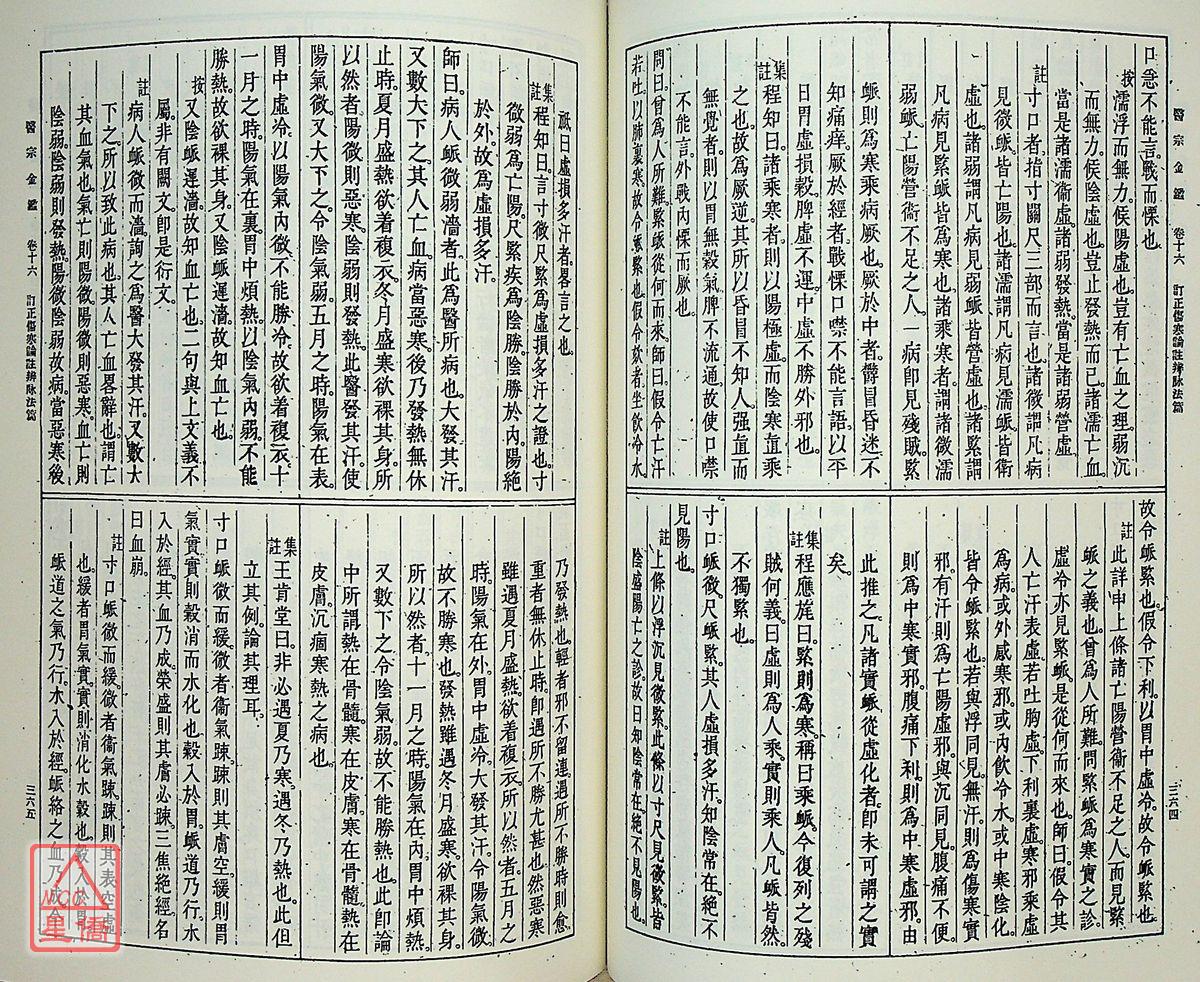 口急不能言戰而慄也
按 濡浮而無力候陽虛也豈有亡血之理弱沉
而無力候陰虛也豈止發熱而已諸濡亡血
當是諸濡衞虛諸弱發熱當是諸弱營虛
註 寸口者指寸關尺三部而言也諸微謂凡病
見微脈皆亡陽也諸濡謂凡病見濡脈皆衞
虛也諸弱謂凡病見弱脈皆營虛也諸緊謂
凡病見緊脈皆爲寒也諸乘寒者謂諸微濡
弱脈亡陽營衞不足之人一病卽見殘賊緊
脈則爲寒乘病厥也厥於中者鬱冒昏迷不
知痛痒厥於經者戰慄口噤不能言語以平
日胃虛損穀脾虛不運中虛不勝外邪也
集註 程知曰諸乘寒者則以陽極虛而陰寒直乘
之也故爲厥逆其所以昏冒不知人强直而
無覺者則以胃無穀氣脾不流通故使口噤
不能言外戰內慄而厥也
問曰曾爲人所難緊脈從何而來師曰假令亡汗
若吐以肺裏寒故令脈緊也假令欬者坐飮冷水
故令脈緊也假令下利以胃中虛冷故令脈緊也
註 此詳申上條諸亡陽營衞不足之人而見緊
脈之義也曾爲人所難問緊脈爲寒實之診
虛冷亦見緊脈是從何而來也師曰假令其
人亡汗表虛若吐胸虛下利裏虛寒邪乘虛
爲病或外感寒邪或內飮冷水或中寒陰化
皆令脈緊也若與浮同見無汗則爲傷寒實
邪有汗則爲亡陽虛邪與沉同見腹痛不便
則爲中寒實邪腹痛下利則爲中寒虛邪由
此推之凡諸實脈從虛化者卽未可謂之實
矣
集註 程應旄曰緊則爲寒稱曰乘脈今復列之殘
賊何義曰虛則爲人乘實則乘人凡脈皆然
不獨緊也
寸口脈微尺脈緊其人虛損多汗知陰常在絶不
見陽也
註 上條以浮沉見微緊此條以寸尺見微緊皆
陰盛陽亡之診故曰知陰常在絶不見陽也
醫宗金鑑 卷十六 訂正傷寒論註辨脉法篇
三六四
祇曰虛損多汗者畧言之也
集註 程知曰言寸微尺緊爲虛損多汗之證也寸
微弱爲亡陽尺緊疾爲陰勝陰勝於內陽絕
於外故爲虛損多汗
師曰病人脈微弱濇者此爲醫所病也大發其汗
又數大下之其人亡血病當惡寒後乃發熱無休
止時夏月盛熱欲着複衣冬月盛寒欲裸其身所
以然者陽微則惡寒陰弱則發熱此醫發其汗使
陽氣微又大下之令陰氣弱五月之時陽氣在表
胃中虛冷以陽氣內微不能勝冷故欲着複衣十
一月之時陽氣在裏胃中煩熱以陰氣內弱不能
勝熱故欲裸其身又陰脈遲濇故知血亡也
按 又陰脈遲濇故知血亡也二句與上文義不
屬非有闕文卽是衍文
註 病人脈微而濇詢之爲醫大發其汗又數大
下之所以致此病也其人亡血畧辭也謂亡
其血氣也氣亡則陽微陽微則惡寒血亡則
陰弱陰弱則發熱陽微陰弱故病當惡寒後
乃發熱也輕者邪不留連遇所不勝時則愈
重者無休止時卽遇所不勝尤甚也然惡寒
雖遇夏月盛熱欲着複衣所以然者五月之
時陽氣在外胃中虛冷大發其汗令陽氣微
故不勝寒也發熱雖遇冬月盛寒欲裸其身
所以然者十一月之時陽氣在內胃中煩熱
又數下之令陰氣弱故不能勝熱也此卽論
中所謂熱在骨髓寒在皮膚寒在骨髓熱在
皮膚沉痼寒熱之病也
集註 王肯堂曰非必遇夏乃寒遇冬乃熱也此但
立其例論其理耳
寸口脈微而緩微者衞氣疎疎則其膚空緩則胃
氣實實則穀消而水化也穀入於胃脈道乃行水
入於經其血乃成榮盛則其膚必疎三焦絶經名
曰血崩
註 寸口脈微而緩微者衞氣疎疎則其表空虛
也緩者胃氣實實則消化水穀也穀入於胃
脈道之氣乃行水入於經脈絡之血乃成今
醫宗金鑑 卷十六 訂正傷寒論註辨脉法篇
三六五
NCC
星僑